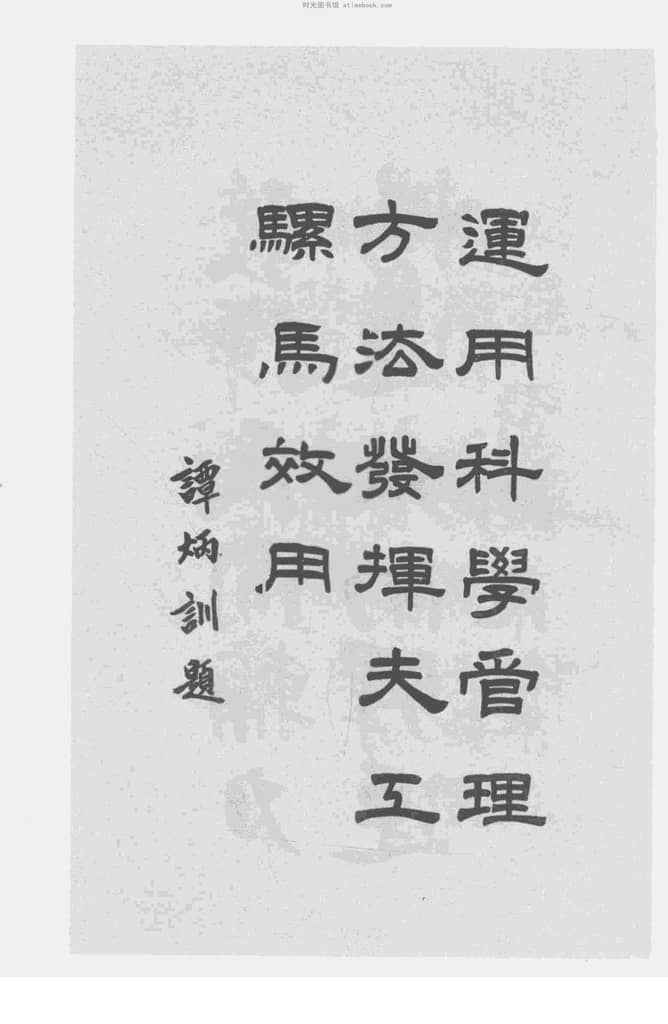 时光图书馆 atimebook.com
運用科學管理
方法發揮夫工
騾馬效用
譚炳訓題